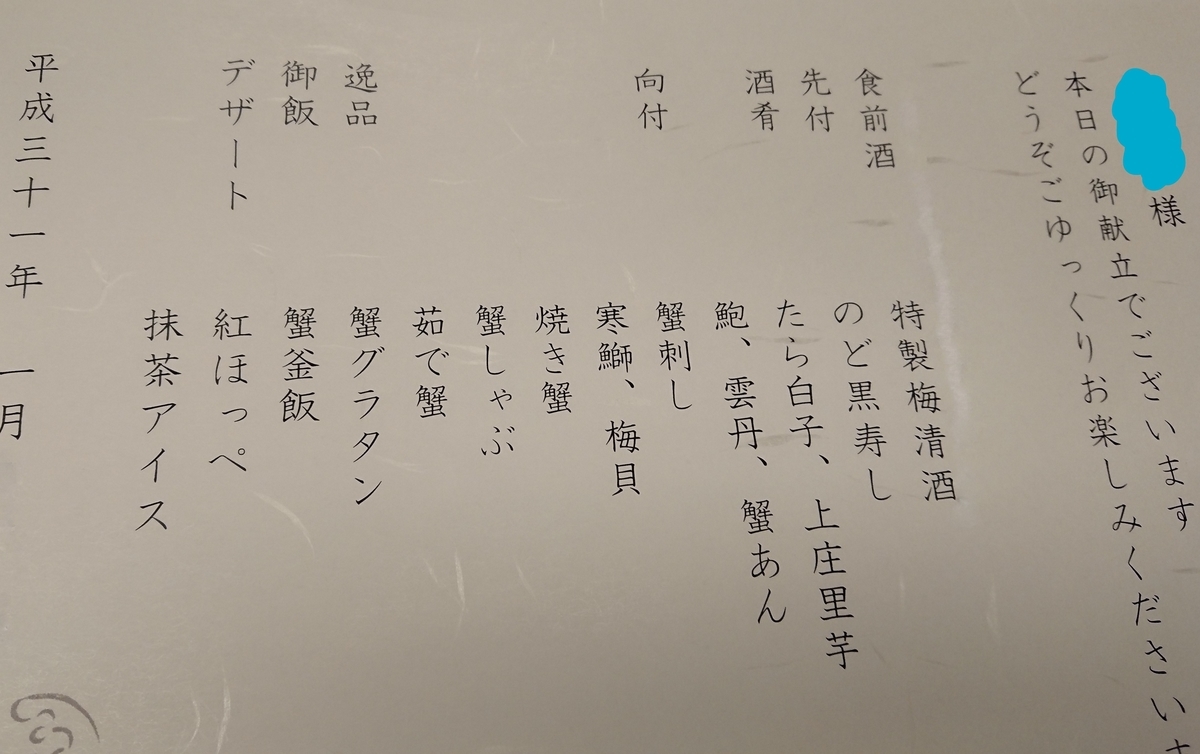 様
本日の御献立でございます
どうぞごゆっくりお楽しみくださいま
食前酒 特製梅清酒
先付 のど黒寿し
酒肴 たら白子、上庄里芋
鮑、雲丹、蟹あん
向付 蟹刺し
寒鰤、梅貝
焼き蟹
蟹しゃぶ
茹で蟹
逸品 蟹グラタン
御飯 蟹釜飯
デザート 紅ほっぺ
抹茶アイス
平成三十一年 一月